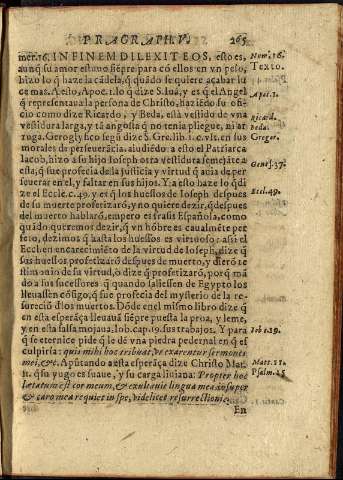 PRAGRAPH. V. 265
mer. 16. IN FINEM DILEXIT EOS, esto es,
aunq̃ su amor estuuo siẽpre para cõ ellos en vn pelo,
hizo lo q̃ haze la cãdela, q̃ quãdo se quiere acabar lu
ce mas. A esto, Apoc. 1. lo dize S. Iuã, y es q̃ el Angel
q̃ representaua la persona de Christo, haziẽdo su ofi
cio como dize Ricardo, y Beda, està vestido de vna
vestidura larga, y tã angosta q̃ no tenia pliegue, ni ar
ruga. Gerogl̃yfico segũ dize S. Gre. lib. 1. c. vlt. en sus
morales de perseuerãcia, aludiẽdo a esto el Patriarca
Iacob, hizo a su hijo Ioseph otra vestidura semejãte a
esta, q̃ fue profecia de la justicia y virtud q̃ auia de per
seuerar en el, y faltar en sus hijos. Y a esto haze lo q̃ di
ze el Eccle. c. 49. y et q̃ los huessos de Ioseph despues
de su muerte profetizarõ, y no quiere dezir, q̃ despues
del muerto hablarõ, empero es frasis Española, como
quãdo queremos dezir, q̃ vn hõbre es caualmẽte per
feto, dezimos q̃ hasta los huessos es virtuoso: assi el
Eccl. en encarecimiẽto de la virtud de Ioseph, dize q̃
sus huessos profetizarõ despues de muerto, y dierõ te
stimonio de su virtud, o dize q̃ profetizarõ, porq̃ mã
do a sus sucessores q̃ quando saliessen de Egypto los
lleuassẽn cõsigo, q̃ fue profecia del mysterio de la re-
surecciõ d̃ los muertos. Dõde en el mismo libro dize q̃
en esta esperãça lleuauã siẽpre puesta la proa, y lemẽ,
y en esta salsa mojaua, Iob. cap. 19. sus trabajos. Y para
q̃ se eternice pide q̃ le dẽ vna piedra pedernal en q̃ es
culpirla: quis mihi hoc tribuat, vt exarentur sermones
mei, &c. Apũtando a esta esperãça dize Christo Mat.
11. q̃ su yugo es suaue, y su carga liuiana: Propter hoc
lætatum est cor meum, & exultauit lingua mea insuper
& caro mea requiet in spe, videlicet resurrectionis.
En
Nom. 16.
Texto.
Apoc. 1.
Ricard.
Beda.
Gregor.
Genes. 37.
Eccl. 49.
Iob 1. 19.
Matt. 11.
Psalm. 15